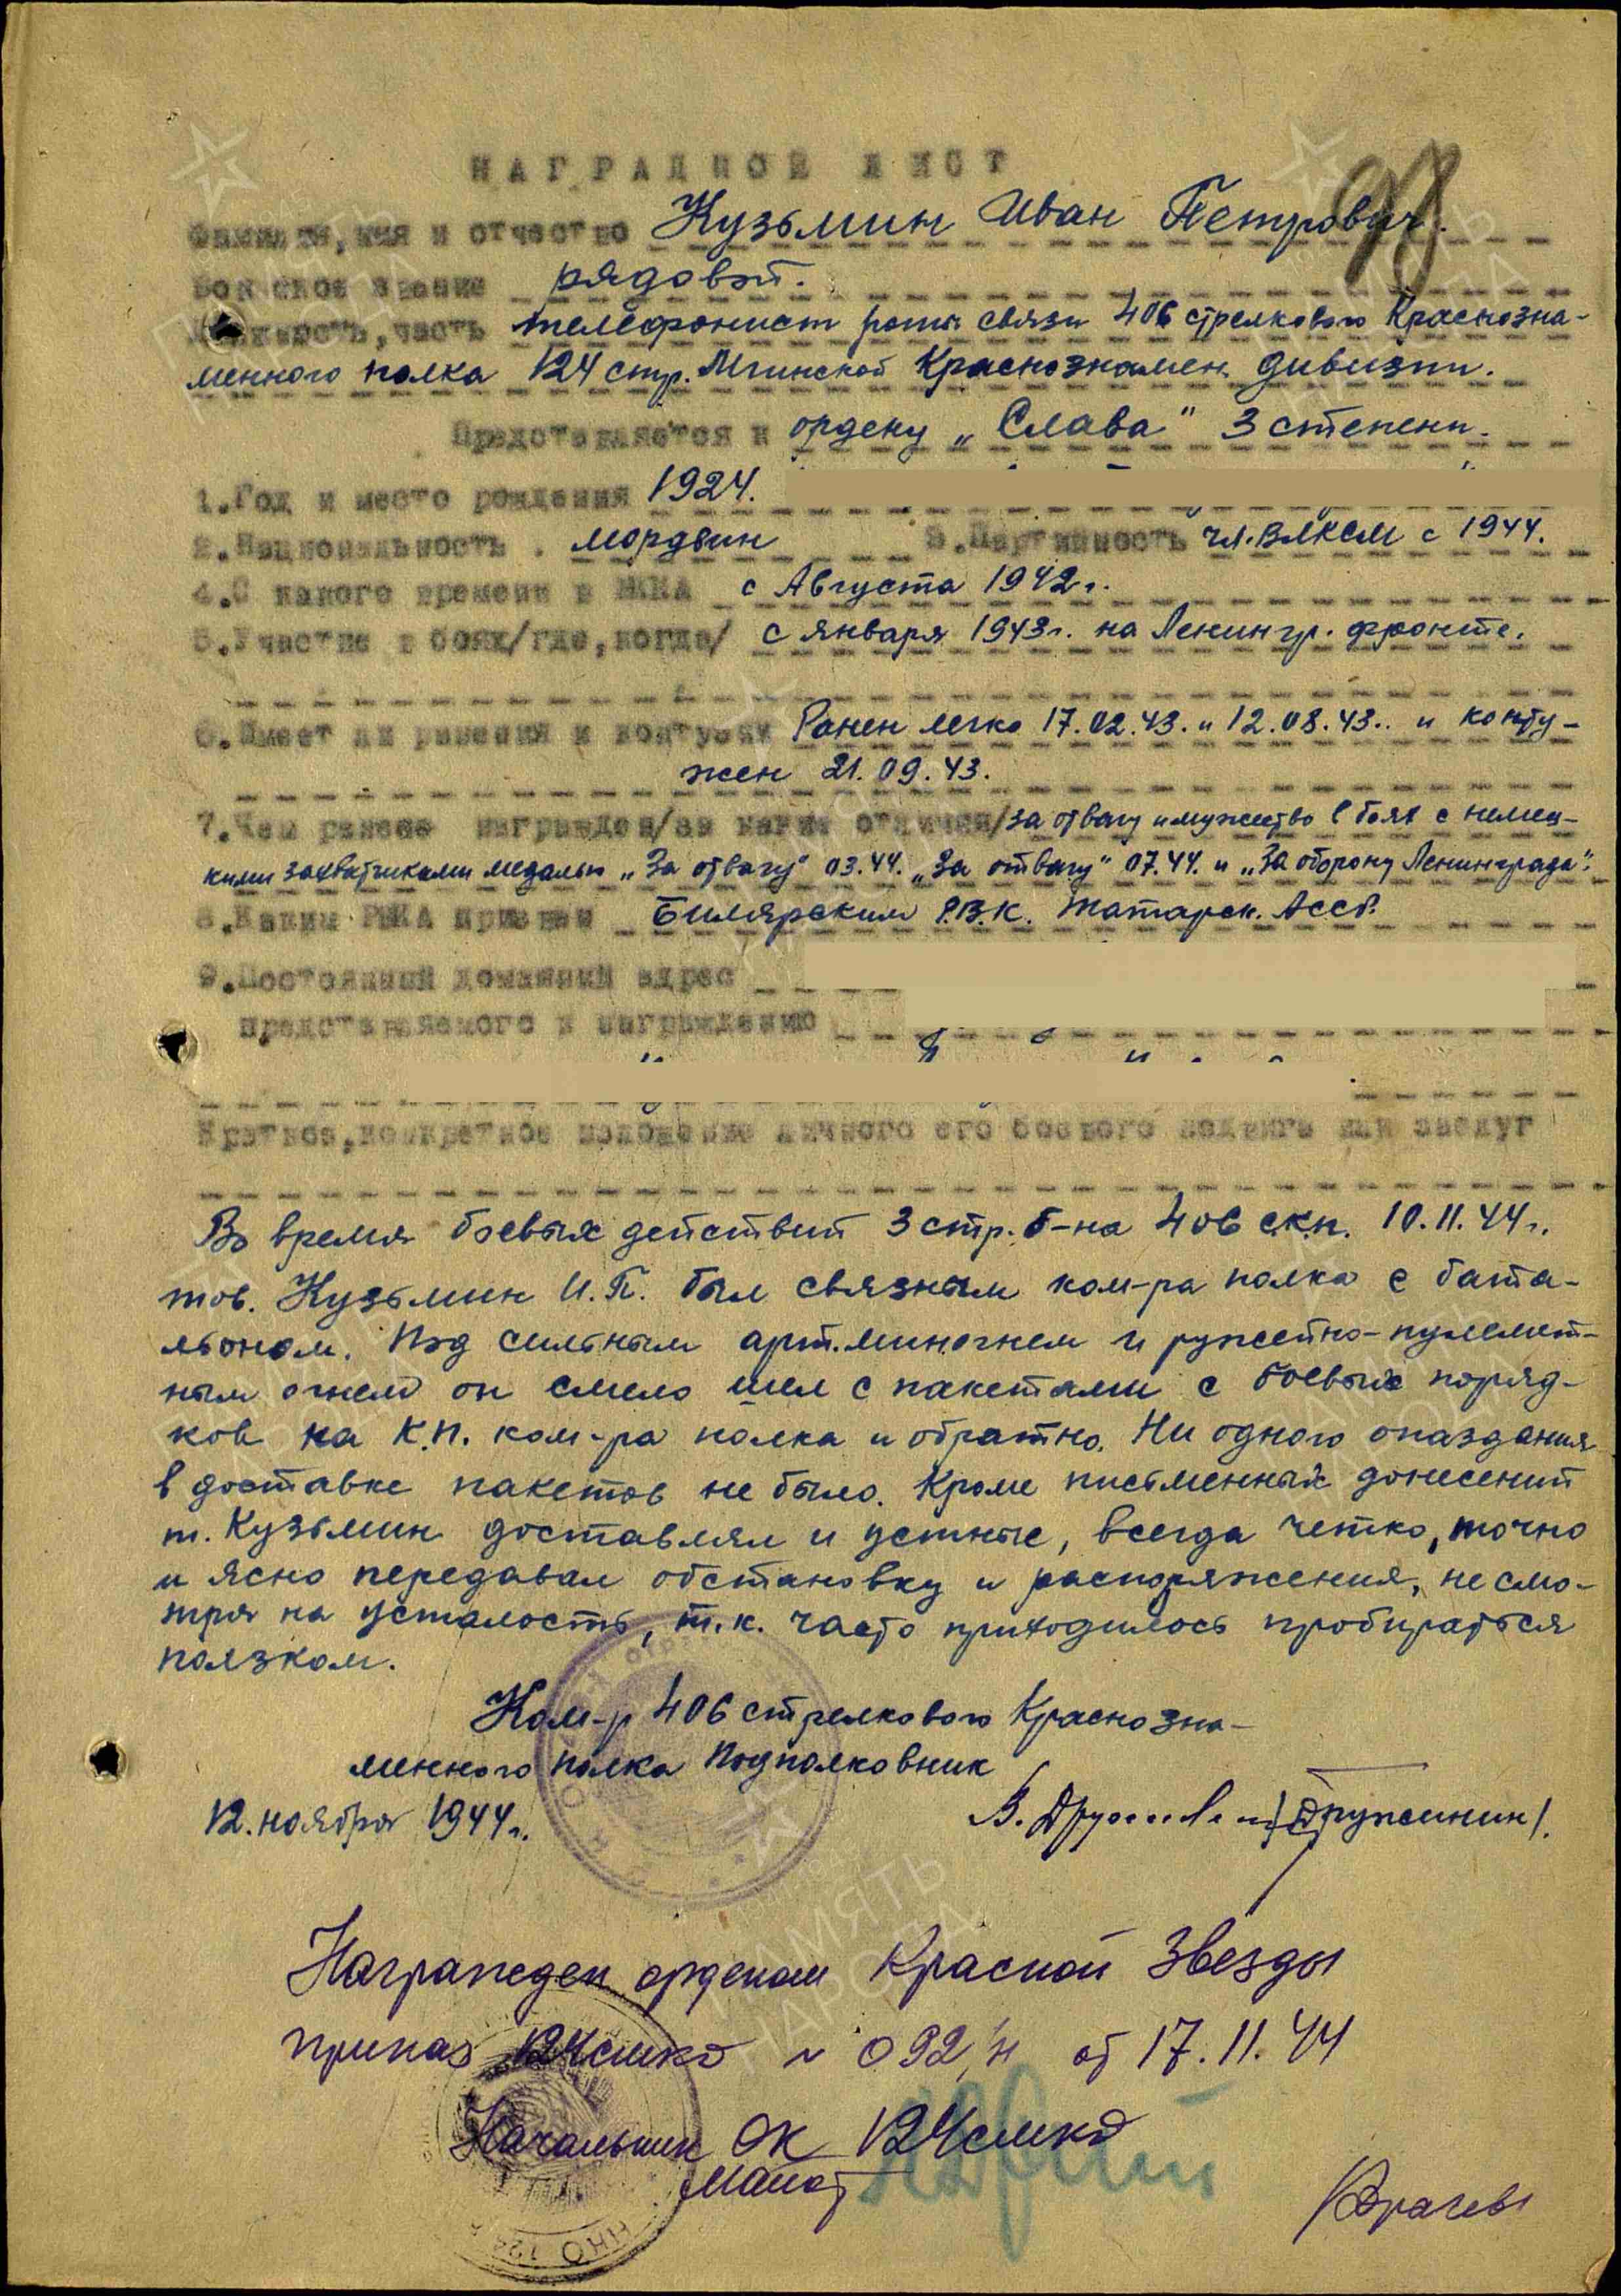 НАГРАДНОЙ ЛИСТ
98
Фамилия, имя и отчество Кузьмин Иван Петрович.
Воинское звание рядовой.
Должность, часть телефонист роты связи 406 стрелкового Краснозна-
менного полка 124 стр. Мгинской Краснознамен. дивизии.
Представляется к ордену „Слава" 3 степени.
1. Год и место рождения 1924.
2. Национальность . мордвин 3. Партийность чл. ВЛКСМ с 1944.
4. С какого времени в РККА с Августа 1942 г.
5. Участие в боях /где, когда/ с января 1943 г. на Ленингр. фронте.
6. Имеет ли ранения и контузии Ранен легко 17.02.43. и 12.08.43.. и конту-
жен 21.09.43.
7. Чем ранее награжден /за какие отличия/ за отвагу и мужество в боях с немец-
кими захватчиками медалью „За отвагу" 03.44. „За отвагу" 07.44. и „За оборону Ленинграда".
8. Каким РВКА призван Билярским Р.В.К. Татарск. АССР.
9. Постоянный домашний адрес
представляемого к награждению
Краткое, конкретное изложение личного его боевого подвига или заслуг
Во время боевых действий 3 стр. б-на 406 с.к.п. 10.11.44 г.
тов. Кузьмин И.П. был связным ком-ра полка с бата-
льоном. Под сильным арт.мин.огнем и ружейно-пулемет-
ным огнем он смело шел с пакетами с боевых поряд-
ков на К.П. ком-ра полка и обратно. Ни одного опаздания
в доставке пакетов не было. Кроме письменных донесений
т. Кузьмин доставлял и устные, всегда четко, точно
и ясно передавал обстановку и распоряжения, не смо-
тря на усталость, т.к. часто приходилось пробираться
ползком.
Ком-р 406 стрелкового Краснозна-
менного полка Подполковник
12. ноября 1944 г. /Дружинин/.
Награжден орденом Красной Звезды
приказ 124 смкд № 092/н от 17.11.44
Начальник ОК 124 смкд
майор
ПАМЯТЬ НАРОДА